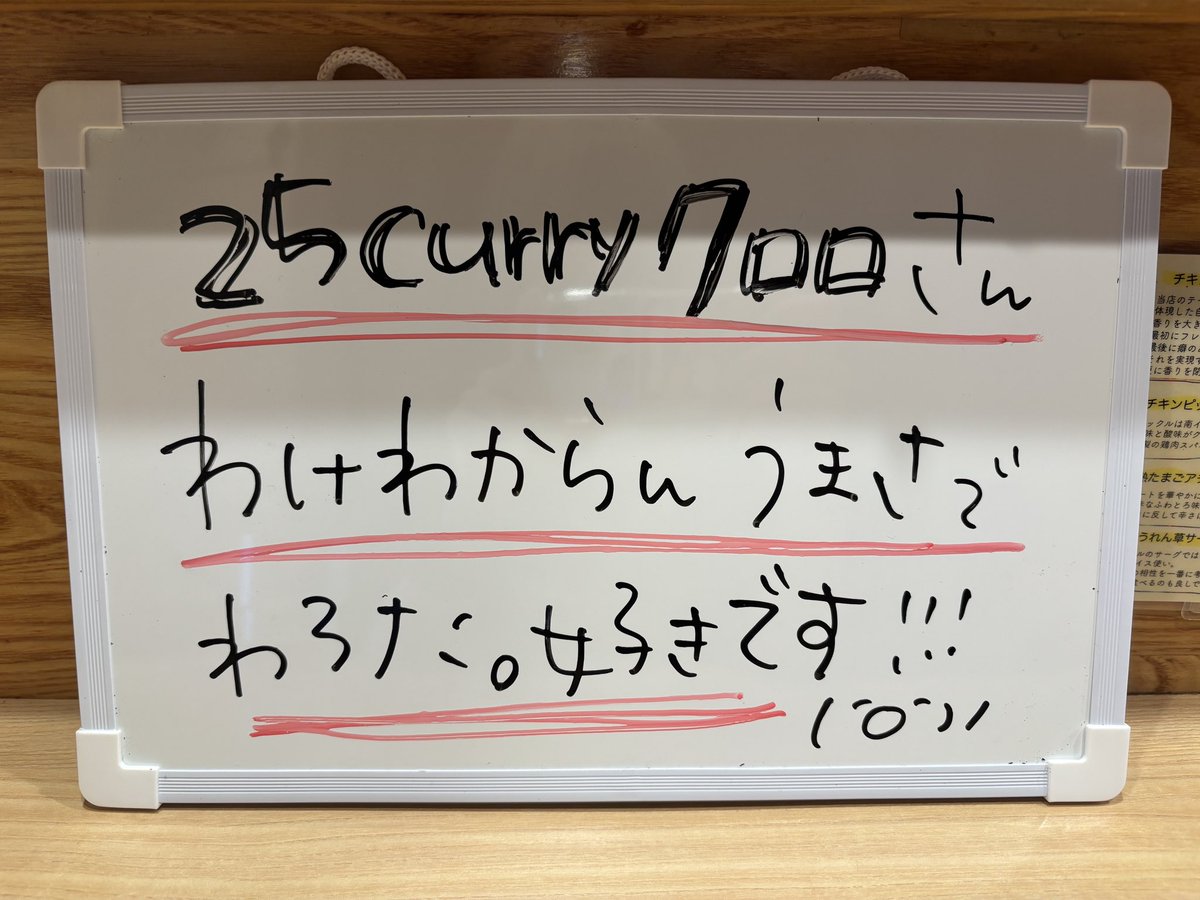 25curryクロロさん
わけわからんうまさで
わろた。好きです!!!
チキ
当店のテー
体現した自
香りを大き
最初にフレ
最後に癖の
それを実現す
に香りを閉
チキンピッ
ックルは南イ
味と酸味がク
製の鶏肉スパ
たまごアチ
ートを華やかに
なふわとろ味
に反して辛さは
うれん草サー
ルのサーグでは
イス使い。
の相性を一番に考
べるのも良しで